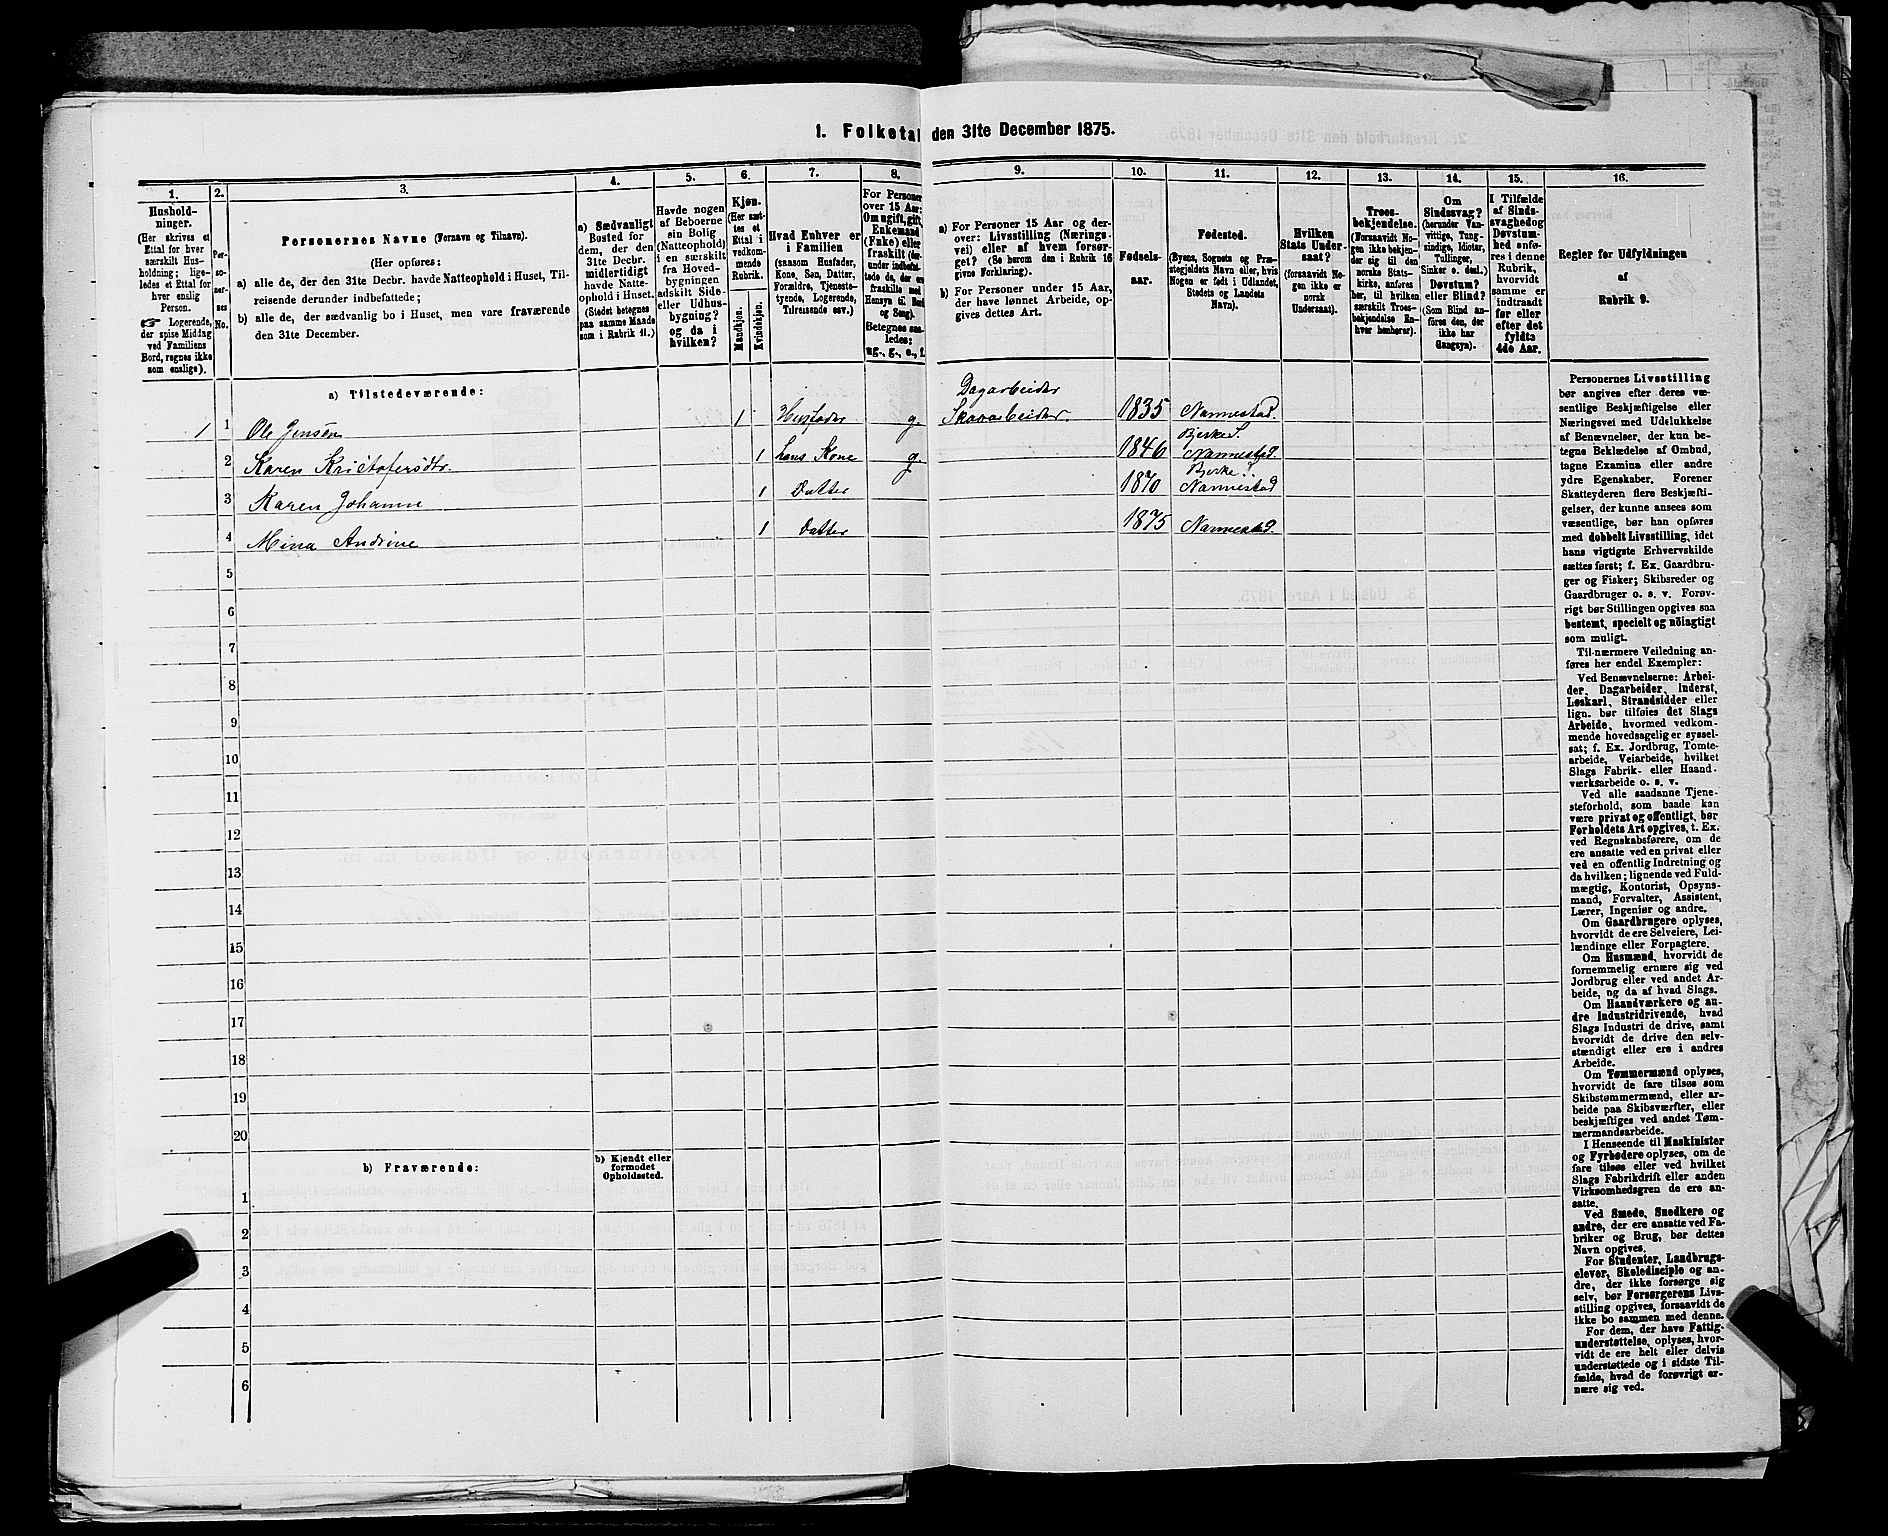 1. Folketal den 31te December 1875.
1.
2.
3.
4.
5.
6.
7.
8.
9.
10.
11.
12.
13.
14.
15.
16.
Hushold-
ninger.
(Her skrives et
Ettal for hver
særskilt Hus-
holdning; lige-
ledes et Ettal for
hver enslig
Person.
☞ Logerende,
der spise Middag
ved Familiens
Bord, regnes ikke
som enslige).
Per-
so-
ner-
nes
No.
Personernes Navne (Fornavn og Tilnavn).
(Her opføres:
a) alle de, der den 31te Decbr. havde Natteophold i Huset, Til-
reisende derunder indbefattede;
b) alle de, der sædvanlig bo i Huset, men vare fraværende
den 31te December.
a) Sædvanligt
Bosted for
dem, der den
31te Decbr.
midlertidigt
havde Natte-
ophold i Huset.
(Stedet betegnes
paa samme Maade
som i Rubrik 11.)
Havde nogen
af Beboerne
sin Bolig
(Natteophold)
i en særskilt
fra Hoved-
bygningen
adskilt Side-
eller Udhus-
bygning?
og da i
hvilken?
Kjøn.
(Her sæt-
tes et
Ettal i
vedkom-
mende
Rubrik.
Mandkjøn.
Kvindekjøn.
Hvad Enhver er
i Familien
(saasom Husfader,
Kone, Søn, Datter,
Forældre, Tjeneste-
tyende, Logerende,
Tilreisende osv.)
For Personer
over 15 Aar:
Om ugift, gift,
Enkemand
(Enke) eller
fraskilt (der-
under indbefat-
tede de, der ere
fraskilte med
Hensyn til Bord
og Seng).
Betegnes saa-
ledes:
ug., g., e., f.
a) For Personer 15 Aar og der-
over: Livsstilling (Nærings-
vei) eller af hvem forsør-
get? (Se herom den i Rubrik 16
givne Forklaring).
b) For Personer under 15 Aar,
der have lønnet Arbeide, op-
gives dettes Art.
Fødsels-
aar.
Fødested.
(Byens, Sognets og Præ-
stegjeldets Navn eller, hvis
Nogen er født i Udlandet,
Stedets og Landets
Navn).
Hvilken
Stats Under-
saat?
(forsaavidt No-
gen ikke er
norsk
Undersaat).
Troes-
bekjendelse.
(Forsaavidt No-
gen ikke bekjen-
der sig til den
norske Stats-
kirke, anføres
her, til hvilken
særskilt Troes-
bekjendelse En-
hver henhører).
Om
Sindssvag?
(herunder Van-
vittige, Tung-
sindige, Idioter,
Tullinger,
Sinker o. desl.)
Døvstum?
eller Blind?
(Som Blind an-
føres den, der
ikke har
Gangsyn).
I Tilfælde
af Sinds-
svaghed og
Døvstum-
hed anfø-
res i denne
Rubrik,
hvorvidt
samme er
indtraadt
før eller
efter det
fyldte
4de Aar.
Regler for Udfyldningen
af
Rubrik 9.
a) Tilstedeværende:
Dagarbeider
1 1 Ole Jensen 1 Husfader g. Skovarbeider. 1835 Nannestad.
Bjerke S.
2 Karen Kristofersdtr. 1 hans Kone g. 1846 Nannestad.
Bjerke S.
3 Karen Johanne 1 Datter 1870 Nannestad
4 Mina Andrine 1 Datter 1875 Nannestad.
5
6
7
8
9
10
11
12
13
14
15
16
17
18
19
20
b) Fraværende:
b) Kjendt eller
formodet
Opholdssted.
1
2
3
4
5
6
Personernes Livsstilling
bør angives efter deres væ-
sentlige Beskjæftigelse eller
Næringsvei med Udelukkelse
af Benævnelser, der kun be-
tegne Beklædelse af Ombud,
tagne Examina eller andre
ydre Egenskaber. Forener
Skatteyderen flere Beskjæfti-
gelser, der kunne ansees som
væsentlige, bør han opføres
med dobbelt Livsstilling, idet
hans vigtigste Erhvervskilde
sættes først; f. Ex. Gaardbru-
ger og Fisker; Skibsreder og
Gaardbruger o. s. v. Forøv-
rigt bør Stillingen opgives saa
bestemt, specielt og nöiagtigt
som muligt.
Til nærmere Veiledning an-
føres her endel Exempler:
Ved Benævnelserne: Arbei-
der, Dagarbeider, Inderst,
Løskarl, Strandsidder eller
lign. bør tilføies det Slags
Arbeide, hvormed vedkom-
mende hovedsagelig er syssel-
sat; f. Ex. Jordbrug, Tomte-
arbeide, Veiarbeide, hvilket
Slags Fabrik- eller Haand-
værksarbeide o. s. v.
Ved alle saadanne Tjene-
steforhold, som baade kan
være privat og offentligt, bør
Forholdets Art opgives, t. Ex.
ved Regnskabsførere, om de
ere ansatte ved en privat eller
ved en offentlig Indretning og
da hvilken; lignende ved Fuld-
mægtig, Kontorist, Opsyns-
mand, Forvalter, Assistent,
Lærer, Ingeniør og andre.
Om Gaardbrugere oplyses,
hvorvidt de ere Selveiere, Lei-
lændinge eller Forpagtere.
Om Husmænd, hvorvidt de
fornemmelig ernære sig ved
Jordbrug eller ved andet Ar-
beide, og da af hvad Slags.
Om Haandværkere og an-
dre Industridrivende, hvad
Slags Industri de drive, samt
hvorvidt de drive den selv-
stændigt eller ere i andres
Arbeide.
Om Tømmermænd oplyses,
hvorvidt de fare tilsøs som
Skibstømmermænd, eller ar-
beide paa Skibsværfter, eller
beskjæftiges ved andet Tøm-
mermandsarbeide.
I Henseende til Maskinister
og Fyrbødere oplyses, om de
fare tilsøs eller ved hvilket
Slags Fabrikdrift eller anden
Virksomhedsgren de ere an-
satte.
Ved Smede, Snedkere og
andre, der ere ansatte ved Fa-
briker og Brug, bør dettes
Navn opgives.
For Studenter, Landbrugs-
elever, Skoledisciple og an-
dre, der ikke forsørge sig
selv, bør Forsørgerens Livs-
stilling opgives, forsaavidt de
ikke bo sammen med denne.
For dem, der have Fattig-
understøttelse, oplyses, hvor-
vidt de ere helt eller delvis
understøttede og i sidste Til-
fælde, hvad de forøvrigt er-
nære sig ved.